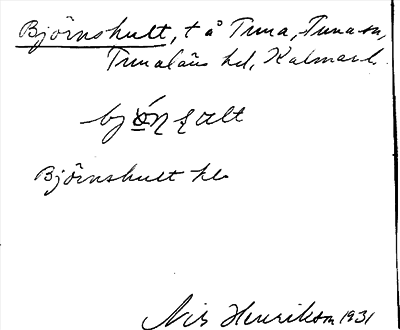 Björnshult, t å Tuna, Tuna sn,
Tunaläns hd, Kalmar l.
Björnshult hb
Nils Henrikson 1931